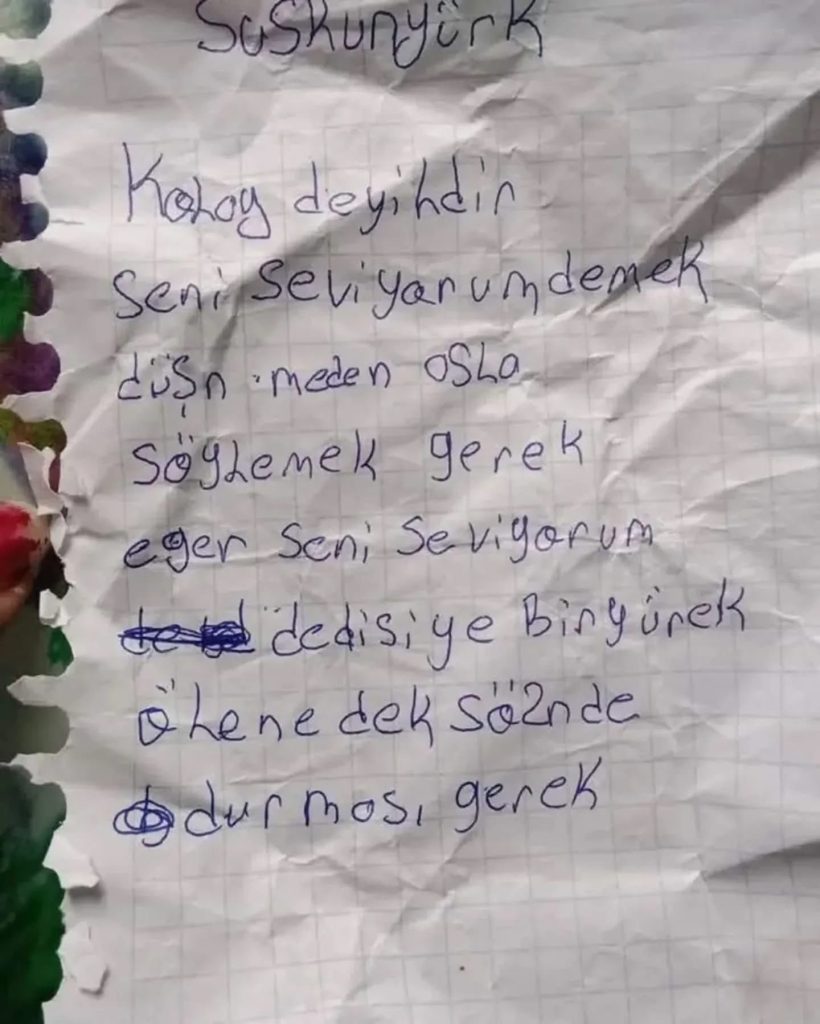 Suskunyürk
Kolay deyildir
seni seviyorumdemek
düşn meden osla
söylemek gerek
eger seni seviyorum
dedisiye Biryürek
ölene dek söznde
durması gerek